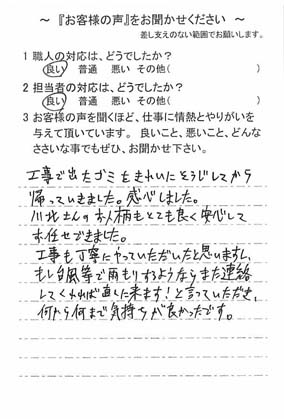 ～ 『お客様の声』をお聞かせください ～
差し支えのない範囲でお願いします。
1 職人の対応は、どうでしたか？
良い 普通 悪い その他( )
2 担当者の対応は、どうでしたか？
良い 普通 悪い その他( )
3 お客様の声を聞くほど、仕事に情熱とやりがいを
与えて頂いています。 良いこと、悪いこと、どんな
ささいな事でもぜひ、お聞かせ下さい。
工事で出たゴミをきれいにそうじしてから
帰っていきました。感心しました。
川北さんのお人柄もとても良く安心して
お任せできました。
工事も丁寧にやっていただいたと思いますし、
もし台風等で雨もりするようならまた連絡
してくれれば直しに来ます！と言っていただき、
何から何まで気持ちが良かったです。